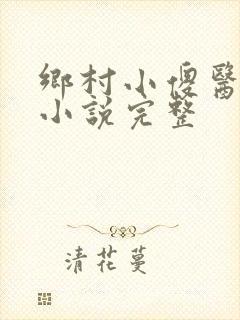 鄉村小傻醫
小說完整
清花蔓